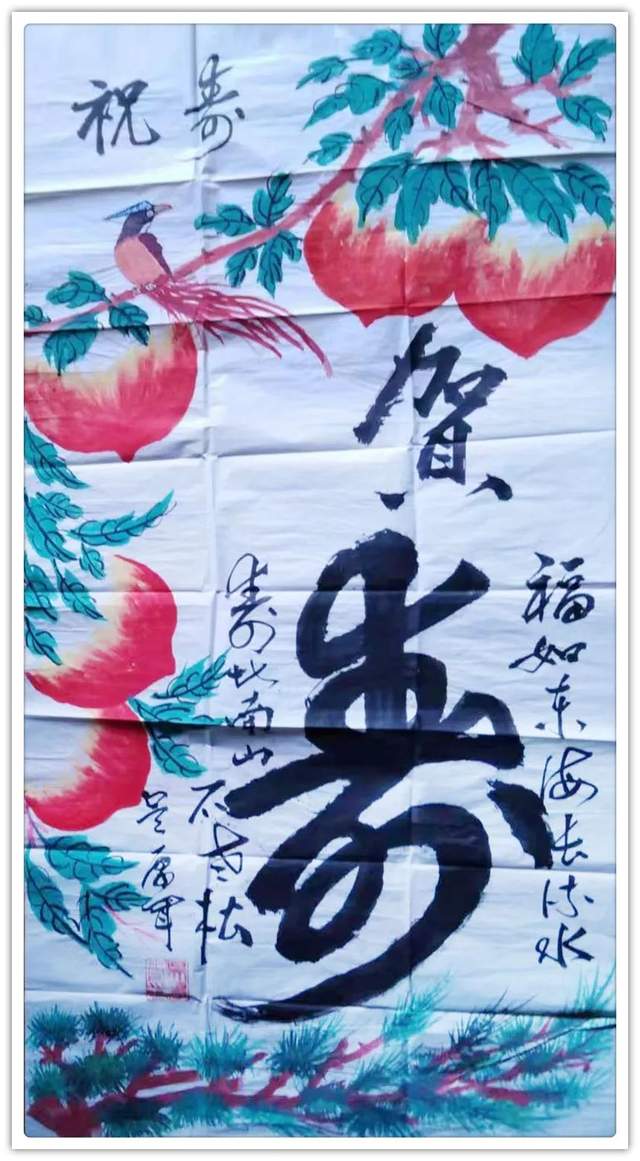 祝寿
賀
寿
福如东海长流水
寿比南山不老松